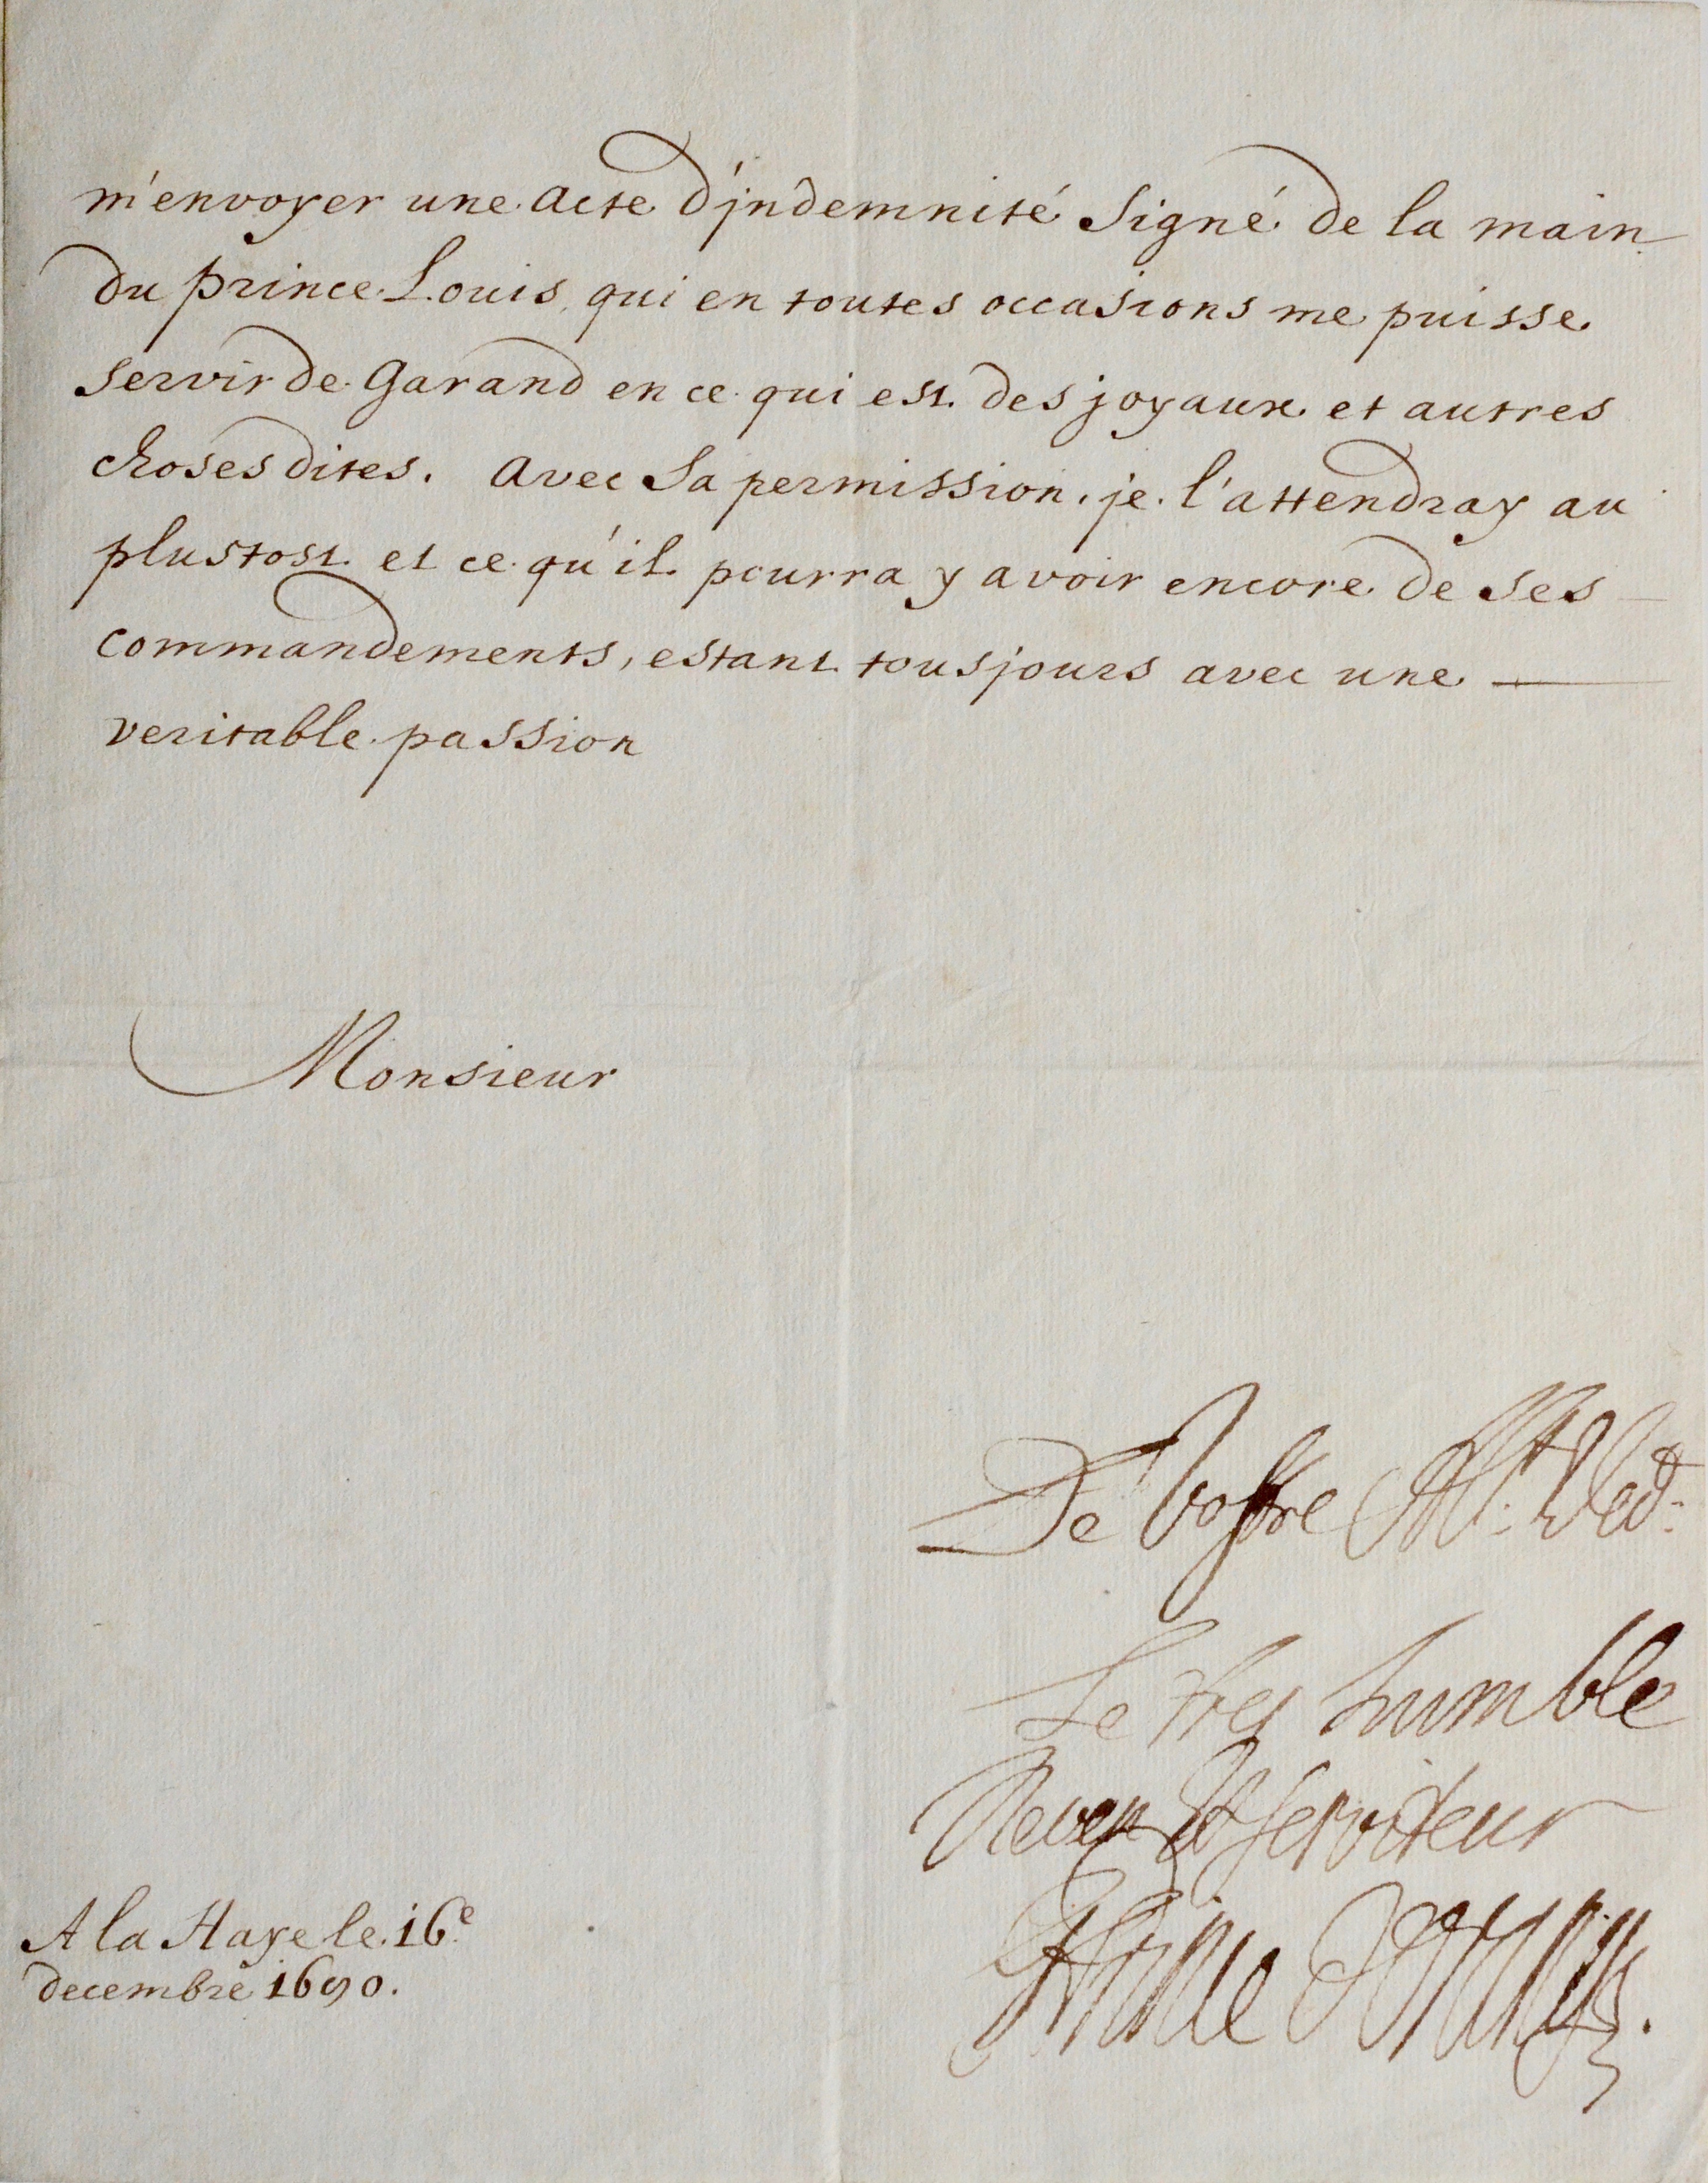 m'envoyer une acte d'jndemnité signé de la main
du prince Louis, qui en toutes occasions me puisse
servir de Garand en ce qui est des joyaux et autres
choses dites. Avec sa permission, je l'attendray au
plustost et ce qu'il pourra y avoir encore de ses
commandements, estant tousjours avec une
veritable passion
Monsieur
De Vostre
Le tres humble
Neveu et serviteur
A la Haye le 16e
decembre 1690.